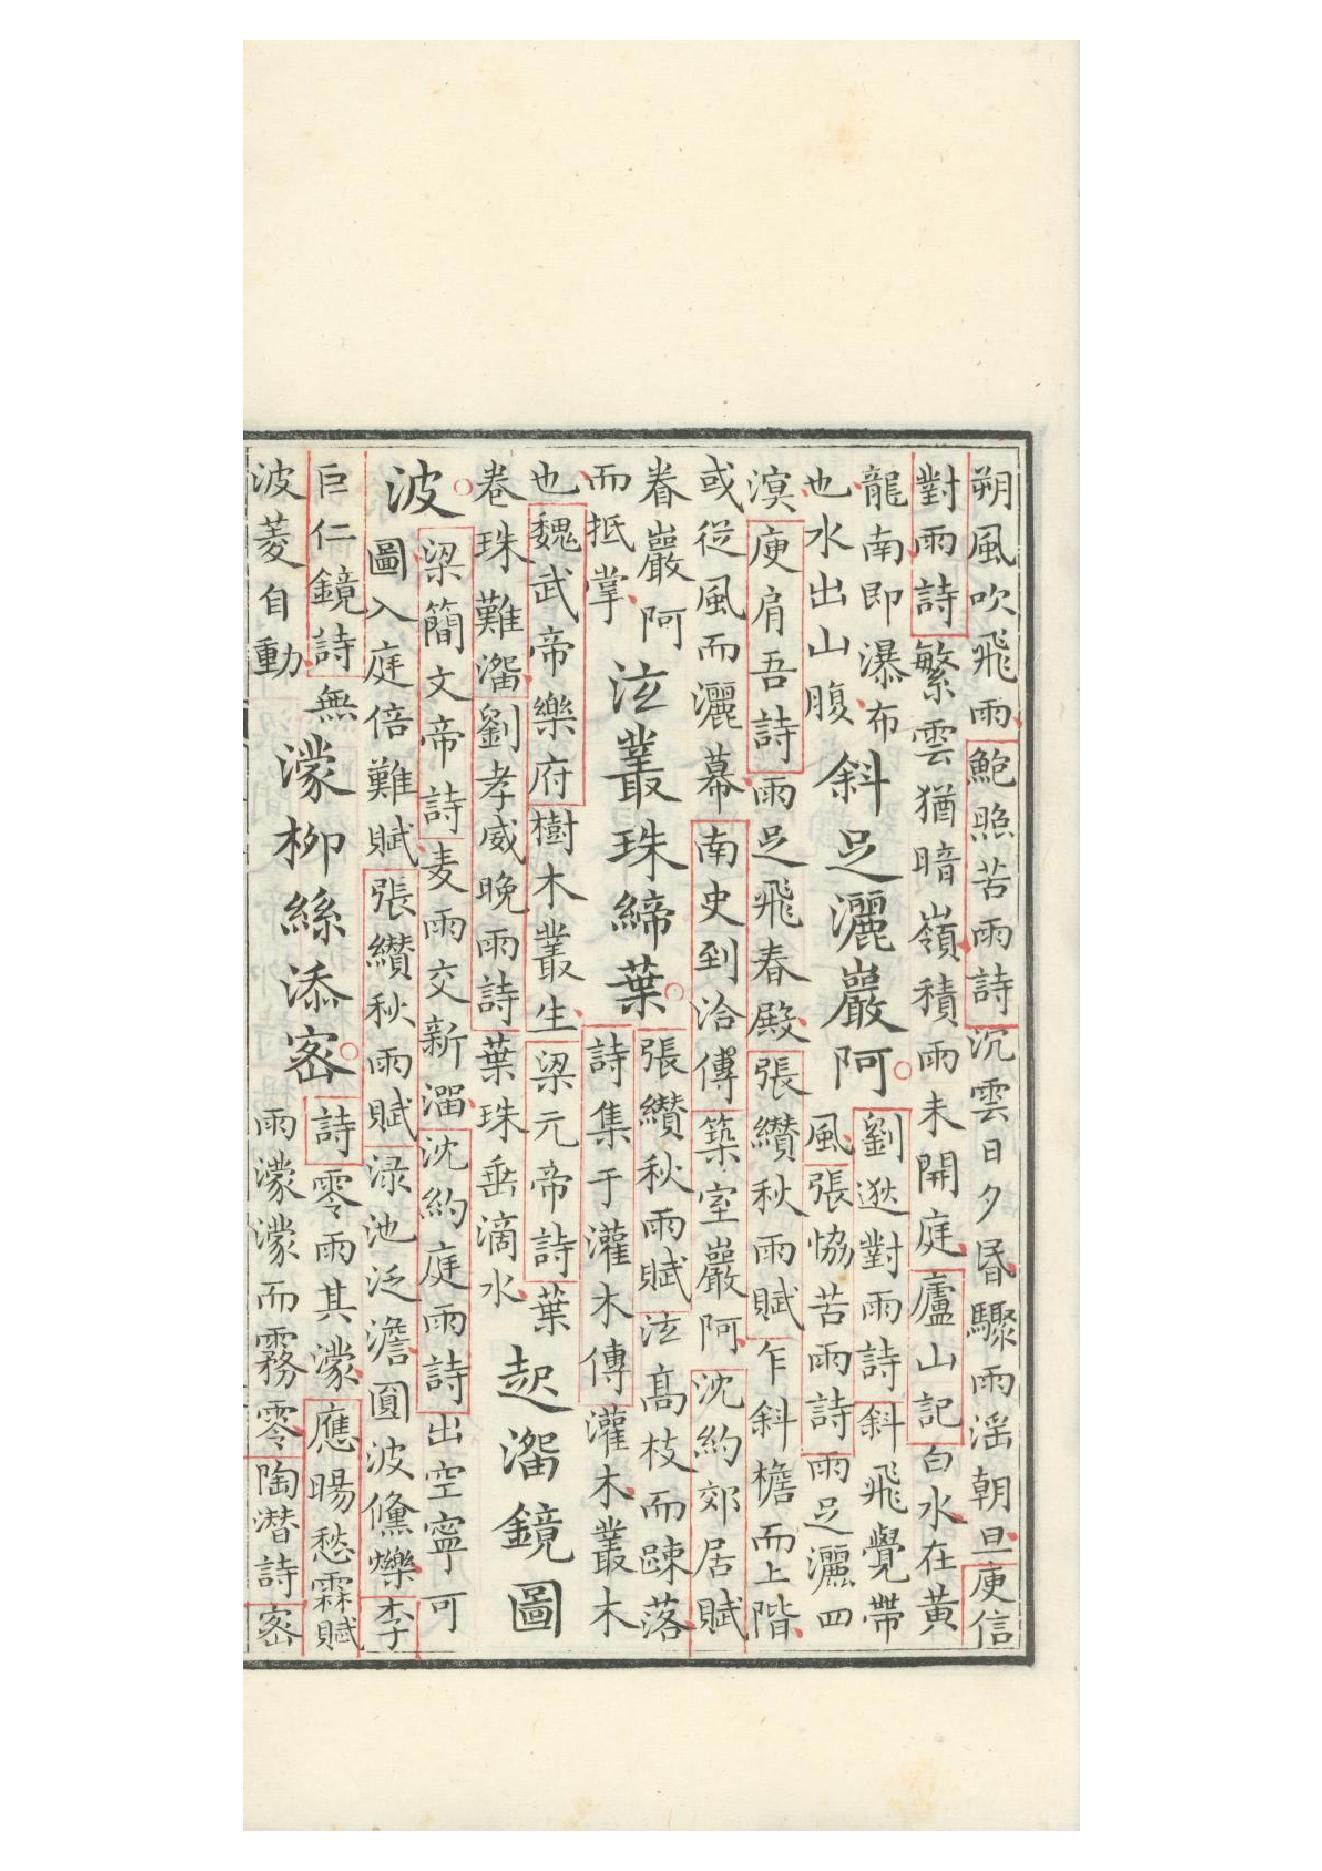 朔風吹飛雨鮑照苦雨詩沉雲日夕昏驟雨淫朝旦庾信
對雨詩繁雲猶暗嶺積雨未開庭廬山記白水在黃
龍南即瀑布
也水出山腹
斜足灑巖阿
劉逖對雨詩斜飛覺帶
風張協苦雨詩雨足灑四
溟庾肩吾詩雨足飛春殿張纘秋雨賦乍斜檐而上階
或從風而灑幕南史到洽傳築室巖阿沈約郊居賦
眷巖阿
而抵掌
泫叢珠締葉
張纘秋雨賦泫高枝而踈落
詩集于灌木傳灌木叢木
也魏武帝樂府樹木叢生梁元帝詩葉
卷珠難溜劉孝威晚雨詩葉珠垂滴水
起溜鏡圖
波
梁簡文帝詩麦雨交新溜沈約庭雨詩出空寧可
圖入庭倍難賦張纘秋雨賦渌池泛澹圓波儵爍李
巨仁鏡詩無
波菱自動
濛柳絲添密
詩零雨其濛應暘愁霖賦
雨濛濛而霧零陶潛詩密